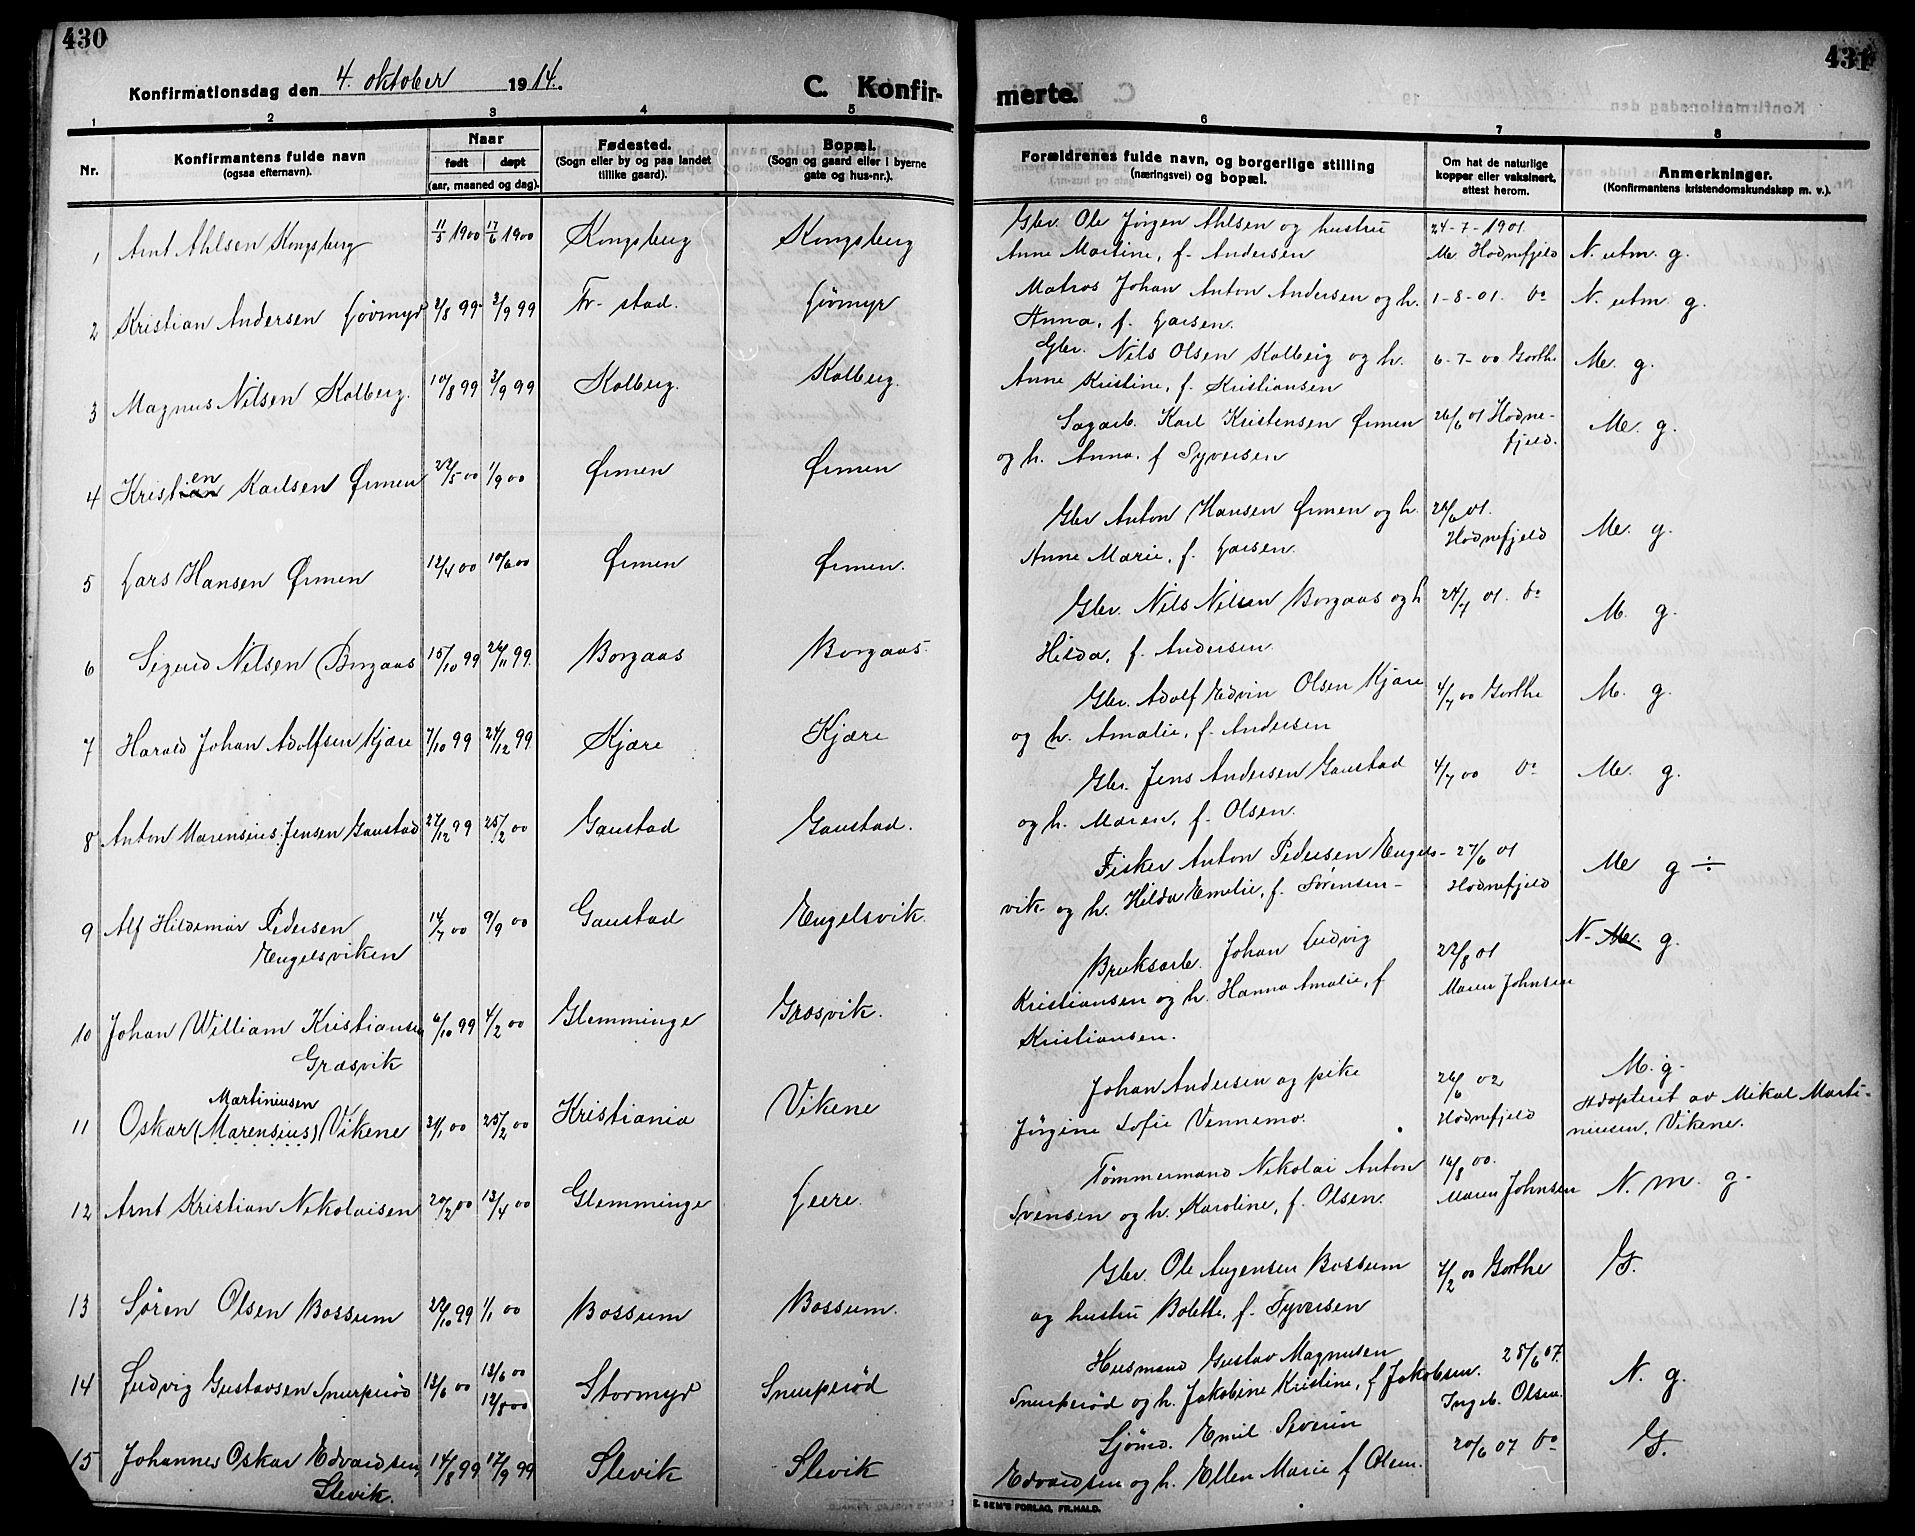 430
Konfirmationsdag den 4. oktober 1914.
C. Konfir-
1 2 3 4 5
Nr.
Konfirmantens fulde navn
(ogsaa efternavn).
Naar
født døpt
(aar, maaned og dag).
Fødested.
(Sogn eller by og paa landet
tillike gaard).
Bopæl.
(Sogn og gaard eller i byerne
gate og hus-nr.).
1 Arnt Ahlsen Kongsberg 11/5 1900 17/6 1900 Kongsberg Kongsberg
2 Kristian Andersen Løvmyr 2/8 99 3/9 99 Fr-stad. Løvmyr
3 Magnus Nilsen Kolberg. 10/8 99 3/9 99 Kolberg. Kolberg.
4 Kristien Karlsen Ørmen 22/5 00 1/9 00 Ørmen Ørmen
5 Lars Hansen Ørmen 12/4 00 10/6 00 Ørmen Ørmen.
6 Sigurd Nilsen Borgaas 15/10 99 26/11 99. Borgaas Borgaas
7 Harald Johan Adolfsen Kjære 7/10 99 24/12 99 Kjære Kjære
8 Anton Marensius Jensen Gaustad 27/12 99 25/2 00 Gaustad Gaustad.
9 Alf Hildemar Pedersen 14/7 00 9/9 00 Gaustad Engelsvik.
Engelsviken
10 Johan William Kristiansen 6/10 99 4/2 00 Glemminge Græsvik.
Græsvik
Martiniusen
11 Oskar (Marensius) Vikene 21/1 00 25/2 00 Kristiania Vikene
12 Arnt Kristian Nikolaisen 20/2 00 13/4 00 Glemminge Leere.
13 Søren Olsen Bossum 22/10 99 1/1 00 Bossum Bossum.
14 Ludvig Gustavsen Snurperød 13/6 00 13/6 00 Stormyr Snurperød
12/8 00
15 Johannes Oskar Edvardsen 14/8 99 17/9 99 Slevik Slevik
Slevik.
431
merte.
6 7 8
Forældrenes fulde navn, og borgerlige stilling
(næringsvei) og bopæl.
Om hat de naturlige
kopper eller vaksinert,
attest herom.
Anmerkninger.
(Konfirmantens kristendomskundskap m. v.).
Gbr. Ole Jørgen Ahlsen og hustru 24-7-1901
Anne Martine, f. Andersen Hodnefjeld N. utm. g.
Matros Johan Anton Andersen og h. 1-8-01. do N. utm g.
Anna, f. Larsen.
Gbr. Nils Olsen Kolberg og h. 6-7-00 Gorthe M. g.
Anne Kristine, f. Kristiansen
Sagarb. Karl Kristensen Ørmen 26/6 01 Hodne-
og h. Anna. f Syversen fjeld. M. g.
Gbr Anton Hansen Ørmen og h. 26/6 01.
Anne Marie, f. Larsen. Hodnefjeld M. g.
Gbr. Nils Nilsen Borgaas og h 24/7 01. do M. g.
Hilda, f. Andersen.
Gbr. Adolf Edvin Olsen Kjære 4/7 00 Gorthe M. g.
og h. Amalie, f. Andersen
Gbr. Jens Andersen Gaustad 4/7 00 do M. g.
og h. Maren, f. Olsen.
Fisker Anton Pedersen Engels- 27/6 01
vik og h. Hilda Emelie, f. Sørensen- Hodnefjeld M g ÷
Bruksarb. Johan Ludvig 22/8 01 N- M. g.
Kristiansen og h. Hanna Amalie, f Maren Johnsen
Kristiansen.
Johan Andersen og pike 26/6 02 M. g.
Jørgine Sofie Vennemo. Hodnefjeld Adopteret av Mikal Marti-
niusen, Vikene.
Tømmermand Nikolai Anton 16/8 00.
Svensen og h. Karoline, f. Olsen. Maren Johnsen N. m. g.
Gbr. Ole Augensen Bossum 7/2 00 Gorthe G.
og hustru Bolette, f. Syversen
Husmand Gustav Magnusen 25/6 07.
Snurperød og h. Jakobine Kristine, f Jakobsen. Ingeb. Olsen. N. g.
Sjømd. Emil Severin 20/6 07 do G.
Edvardsen og h. Ellen Marie f Olsen.
E. SEM'S FORLAG, FR.HALD.